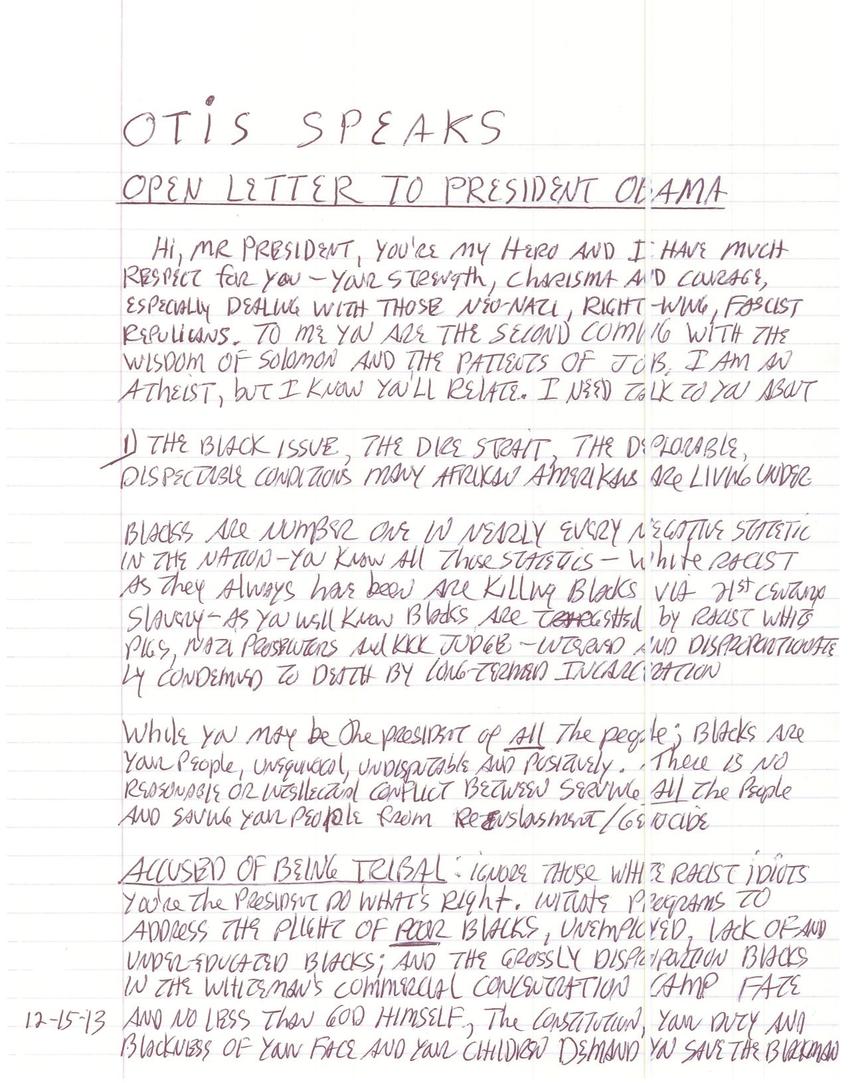 OTIS SPEAKS
OPEN LETTER TO PRESIDENT OBAMA
Hi, MR PRESIDENT, YOU'RE MY HERO AND I HAVE MUCH
RESPECT for YOU – YOUR STRENGTH, CHARISMA AND COURAGE,
ESPECIALLY DEALING WITH THOSE NEO-NAZI, RIGHT-WING, FASCIST
REPULICANS. TO ME YOU ARE THE SECOND COMING WITH THE
WISDOM OF SOLOMON AND THE PATIENTS OF JOB. I AM AN
ATHEIST, but I KNOW YOU'LL RELATE. I NEED TALK TO YOU ABOUT
1) THE BLACK ISSUE, THE DIRE STRAIT, THE DEPLORABLE,
DISPECTABLE CONDITIONS MANY AFRIKAN AMERIKANS ARE LIVING UNDER
BLACKS ARE NUMBER ONE IN NEARLY EVERY NEGATIVE STATETIC
IN THE NATION – YOU KNOW All Those STATETICS – White RACIST
AS They Always have been ARE Killing Blacks VIA 21st CENTURY
Slavery – AS YOU WELL KNOW Blacks ARE by RACIST WHITE
PIGS, NAZI PROSECUTORS And KKK JUDGE – INTERNED AND DISPROPORTIONATE
LY CONDEMNED TO DEATH BY LONG-TERMED INCARCERATION
While YOU MAY be The PRESIDENT of All The people; BLACKS ARE
YOUR People, UNEQUIVOCAL, UNDISPUTABLE AND POSITIVELY. There IS NO
REASONABLE OR INTELLECTUAL CONFLICT BETWEEN SERVING All The People
AND SAVING YOUR PEOPLE FROM /GENOCIDE
ACCUSED OF BEING TRIBAL: IGNORE THOSE WHITE RACIST IDIOTS
You're The PRESIDENT DO WHAT'S Right. INITIATE PROGRAMS TO
ADDRESS THE PLIGHT OF POOR BLACKS, UNEMPLOYED, LACK OF AND
UNDER-EDUCATED BLACKS; AND THE GROSSLY BLACKS
IN THE WHITEMAN'S COMMERCIAL CONCENTRATION CAMP FATE
12-15-13 AND NO LESS THAN GOD HIMSELF, The CONSTITUTION, YOUR DUTY AND
BLACKNESS OF YOUR FACE AND YOUR CHILDREN DEMAND YOU SAVE THE BLACKMAN